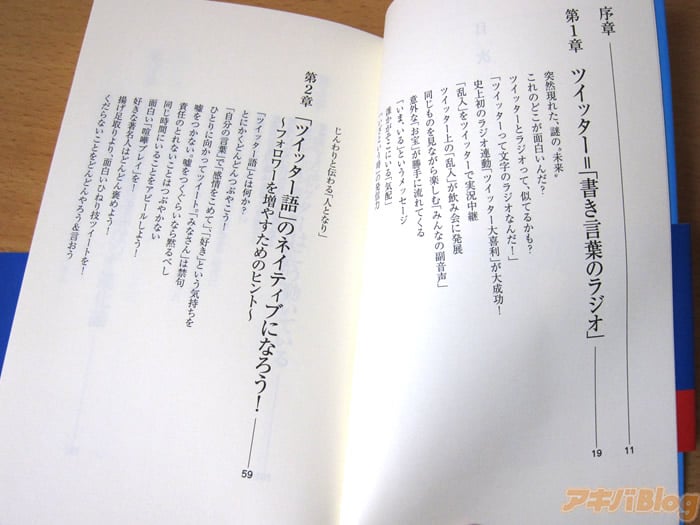 目次
序章
11
第1章 ツイッター=「書き言葉のラジオ」
19
突然現れた、謎の“未来”
これのどこが面白いんだ?
ツイッターとラジオって、似てるかも?
「ツイッターって文字のラジオなんだ!」
史上初のラジオ連動「ツイッター大喜利」が大成功!
「乱入」をツイッターで実況中継
ツイッター上の「乱入」が飲み会に発展
同じものを見ながら楽しむ「みんなの副音声」
意外な「お宝」が勝手に流れてくる
「いま、いる」というメッセージ
誰かがそこにいる「気配」
じんわりと伝わる「人となり」
第2章 「ツイッター語」のネイティブになろう!
〜フォロワーを増やすためのヒント〜
59
「ツイッター語」とは何か?
とにかくどんどんつぶやこう!
「自分の言葉」で「感情をこめて」、「好き」という気持ちを
ひとりに向かってツイート、「みなさん」は禁句
嘘をつかない、嘘をつくくらいなら黙るべし
責任のとれないことはつぶやかない
同じ時間にいることをアピールしよう
面白い「喧嘩プレイ」を!
好きな著名人はどんどん褒めよう!
揚げ足取りより、面白いひねり技ツイートを!
くだらないことをどんどんやろう&言おう
アキバBlog